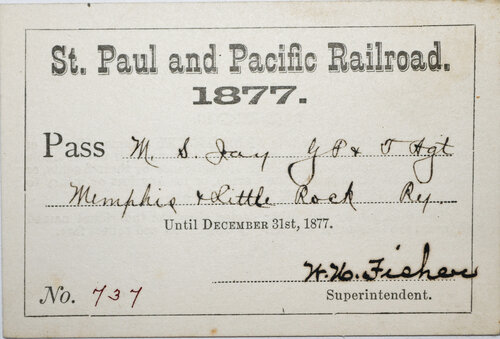 St. Paul and Pacific Railroad.
1877.
Pass M. S. Jay G P & T Agt
Memphis & Little Rock Ry.
Until DECEMBER 31st, 1877.
W. H. Fisher
No. 737
Superintendent.